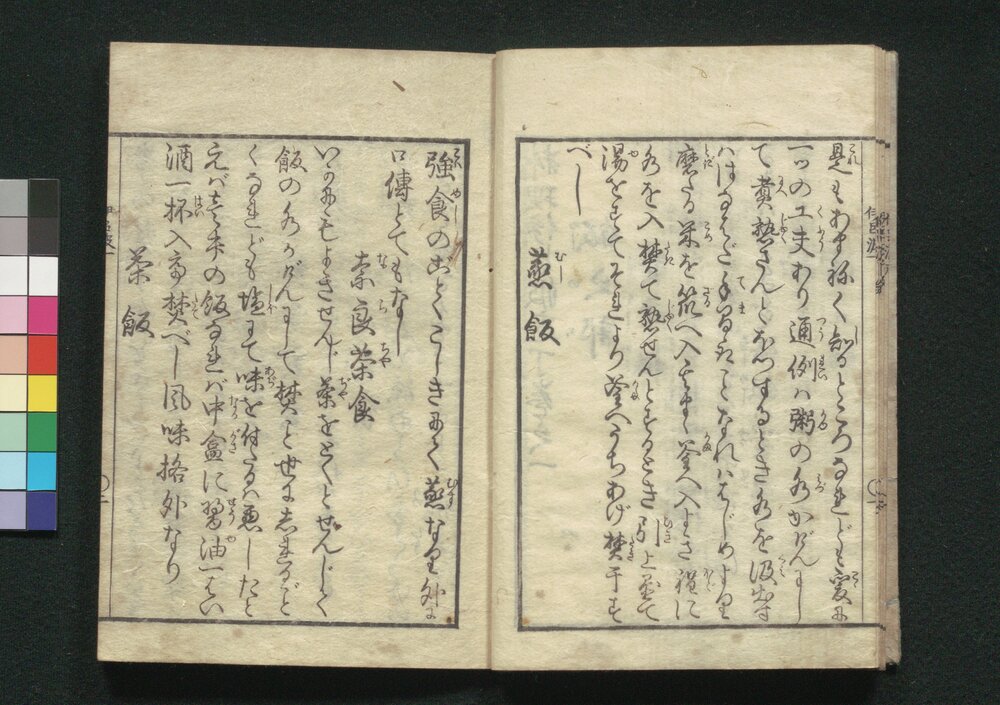 是もあまねく知るところなれども爰に
一ツの工夫あり通例は粥の水かげんにし
て煮熟さんとほつするとき水を汲出す
はすなはだ手前なることなれははじめより
磨たる米を笊へ入さて釜へ入よき程に
水を入焚て熟せんとするとき引上置て
湯をすてそれより釜へうちあげ焚干す
べし
蒸飯
強食のごとくこしきにて蒸なり外に
口傳とてもなし
奈良茶食
いかにもよきせんじ茶をとくとせんじて
飯の水かげんにして焚こと世にしれるごと
くなれども塩にて味を付たるは悪したと
えば壱升の飯なれば中盒に醤油一はい
酒一杯入て焚べし風味格外なり
茶飯